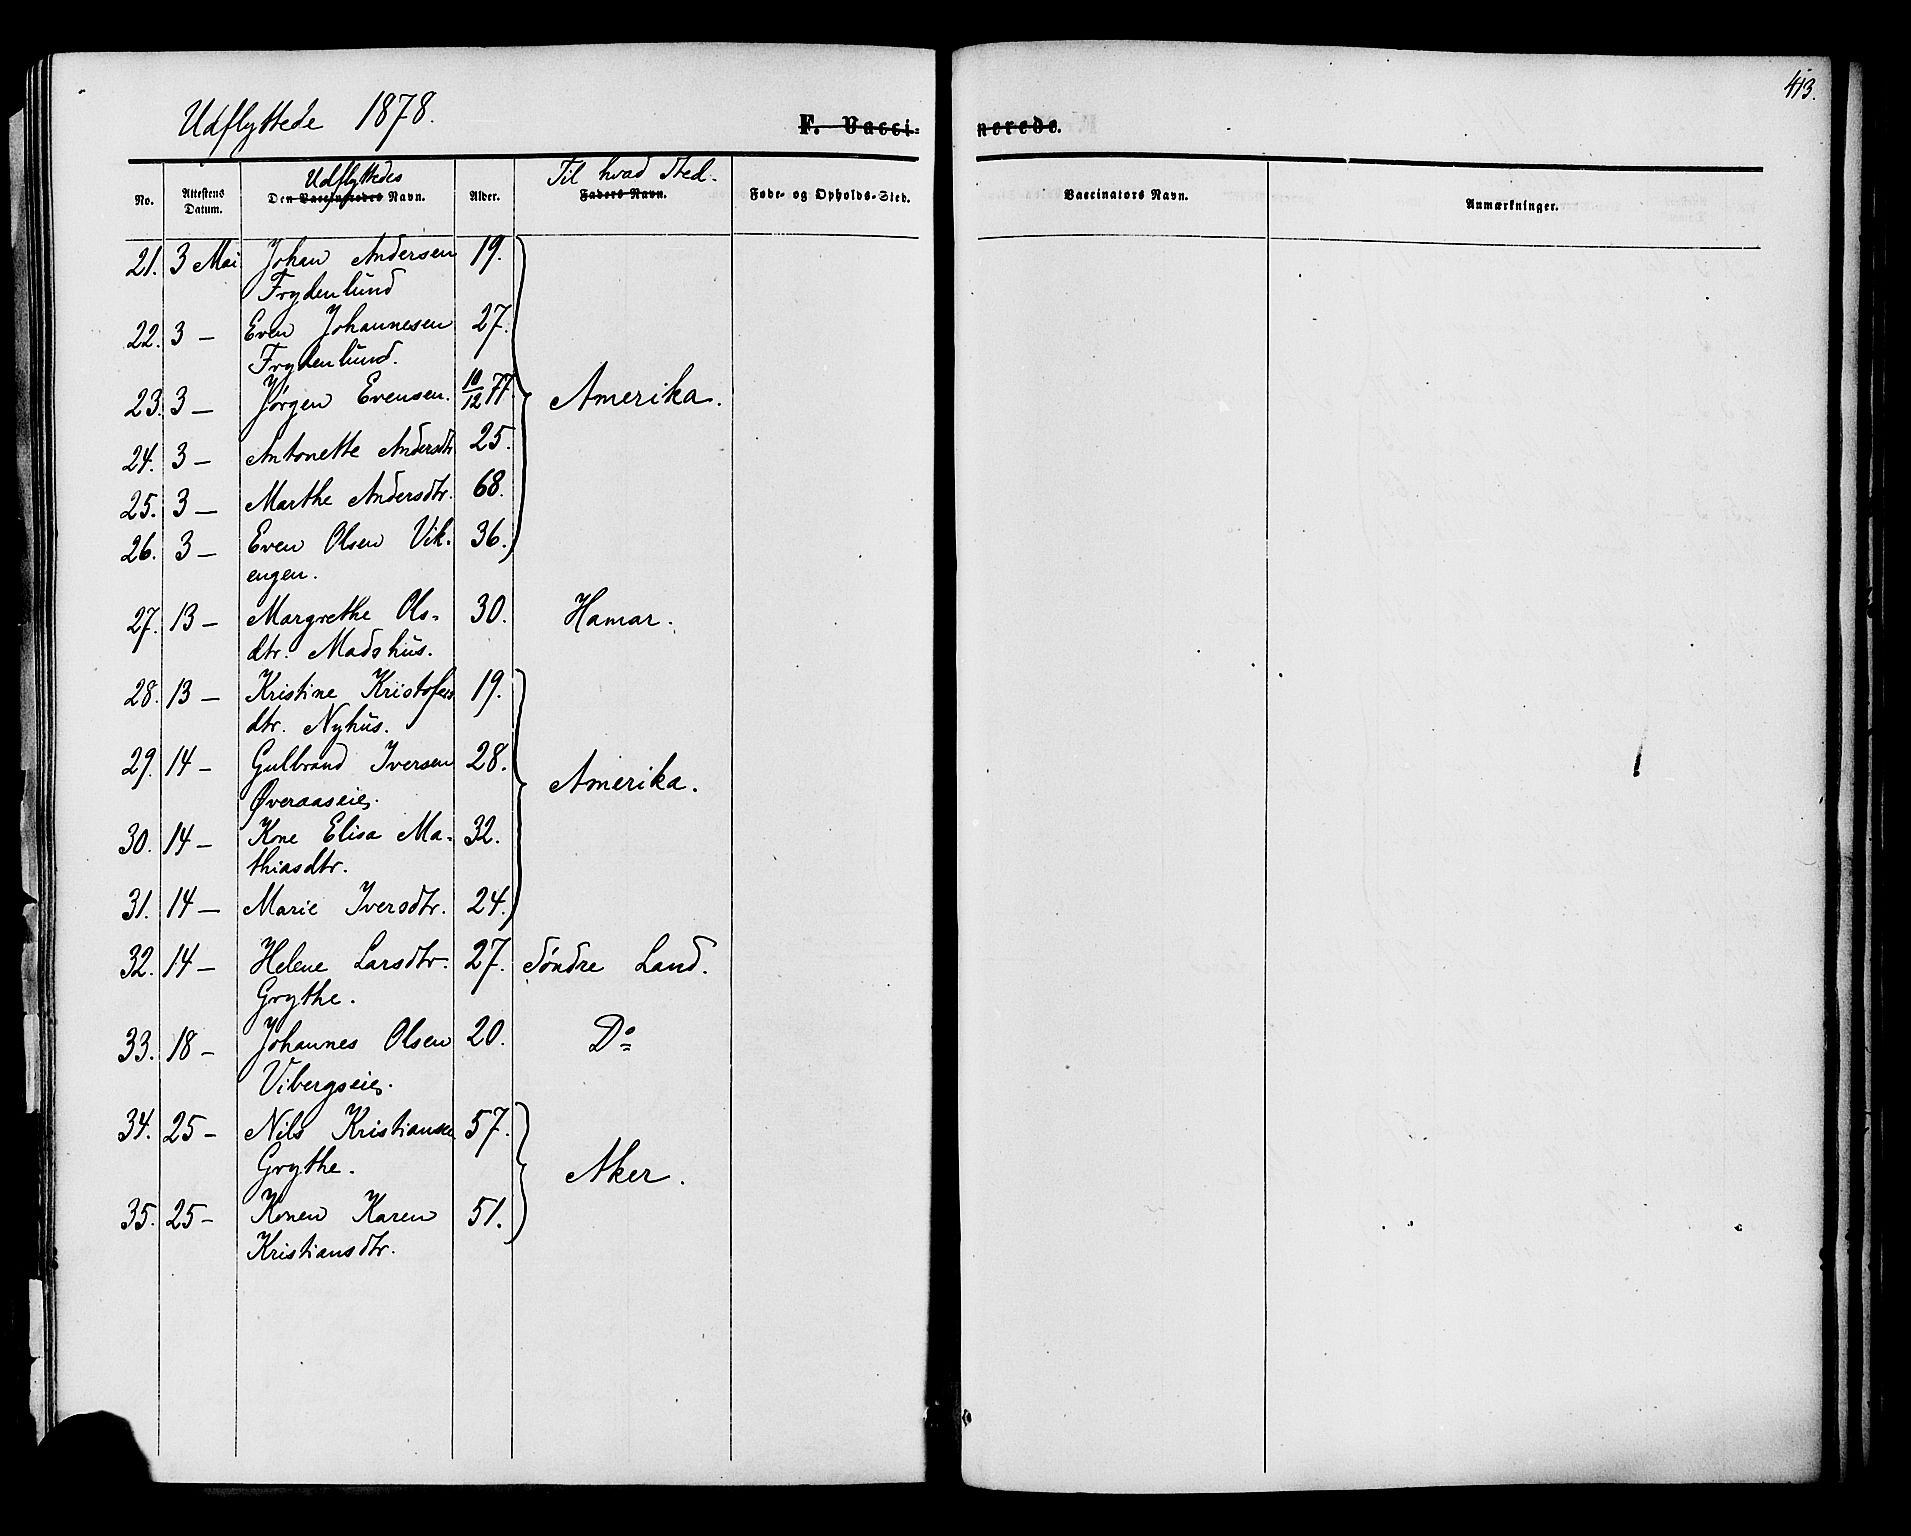 413.
Udflyttede 1878.
F. Vacci- nerede.
Udflyttedes
Til hvad Sted.
No. Attestens Datum. Den Vaccineredes Navn. Alder. Faders Navn. Føde- og Opholds-Sted. Vaccinators Navn. Anmærkninger.
21. 3 Mai Johan Andersen 19.
Frydenlund
22. 3 — Even Johannesen 27.
Frydenlund.
23. 3 — Jørgen Evensen. 10/12 77. Amerika.
24. 3 — Antonette Andersdtr 25.
25. 3 — Marthe Andersdtr. 68.
26. 3 — Even Olsen Vik- 36.
engen.
27. 13 — Margrethe Ols- 30. Hamar.
dtr. Madshus.
28. 13 — Kristine Kristofers 19.
dtr. Nyhus.
29. 14 — Gulbrand Iversen 28. Amerika.
Øveraaseie.
30. 14 — Kone Elisa Ma- 32.
thiasdtr.
31. 14 — Marie Iversdtr. 24.
32. 14 — Helene Larsdtr. 27. Søndre Land.
Grythe.
33. 18 — Johannes Olsen 20. Do
Vibergseie.
34. 25 — Nils Kristiansen 57.
Grythe. Aker.
35. 25 — Konen Karen 51.
Kristiansdtr.